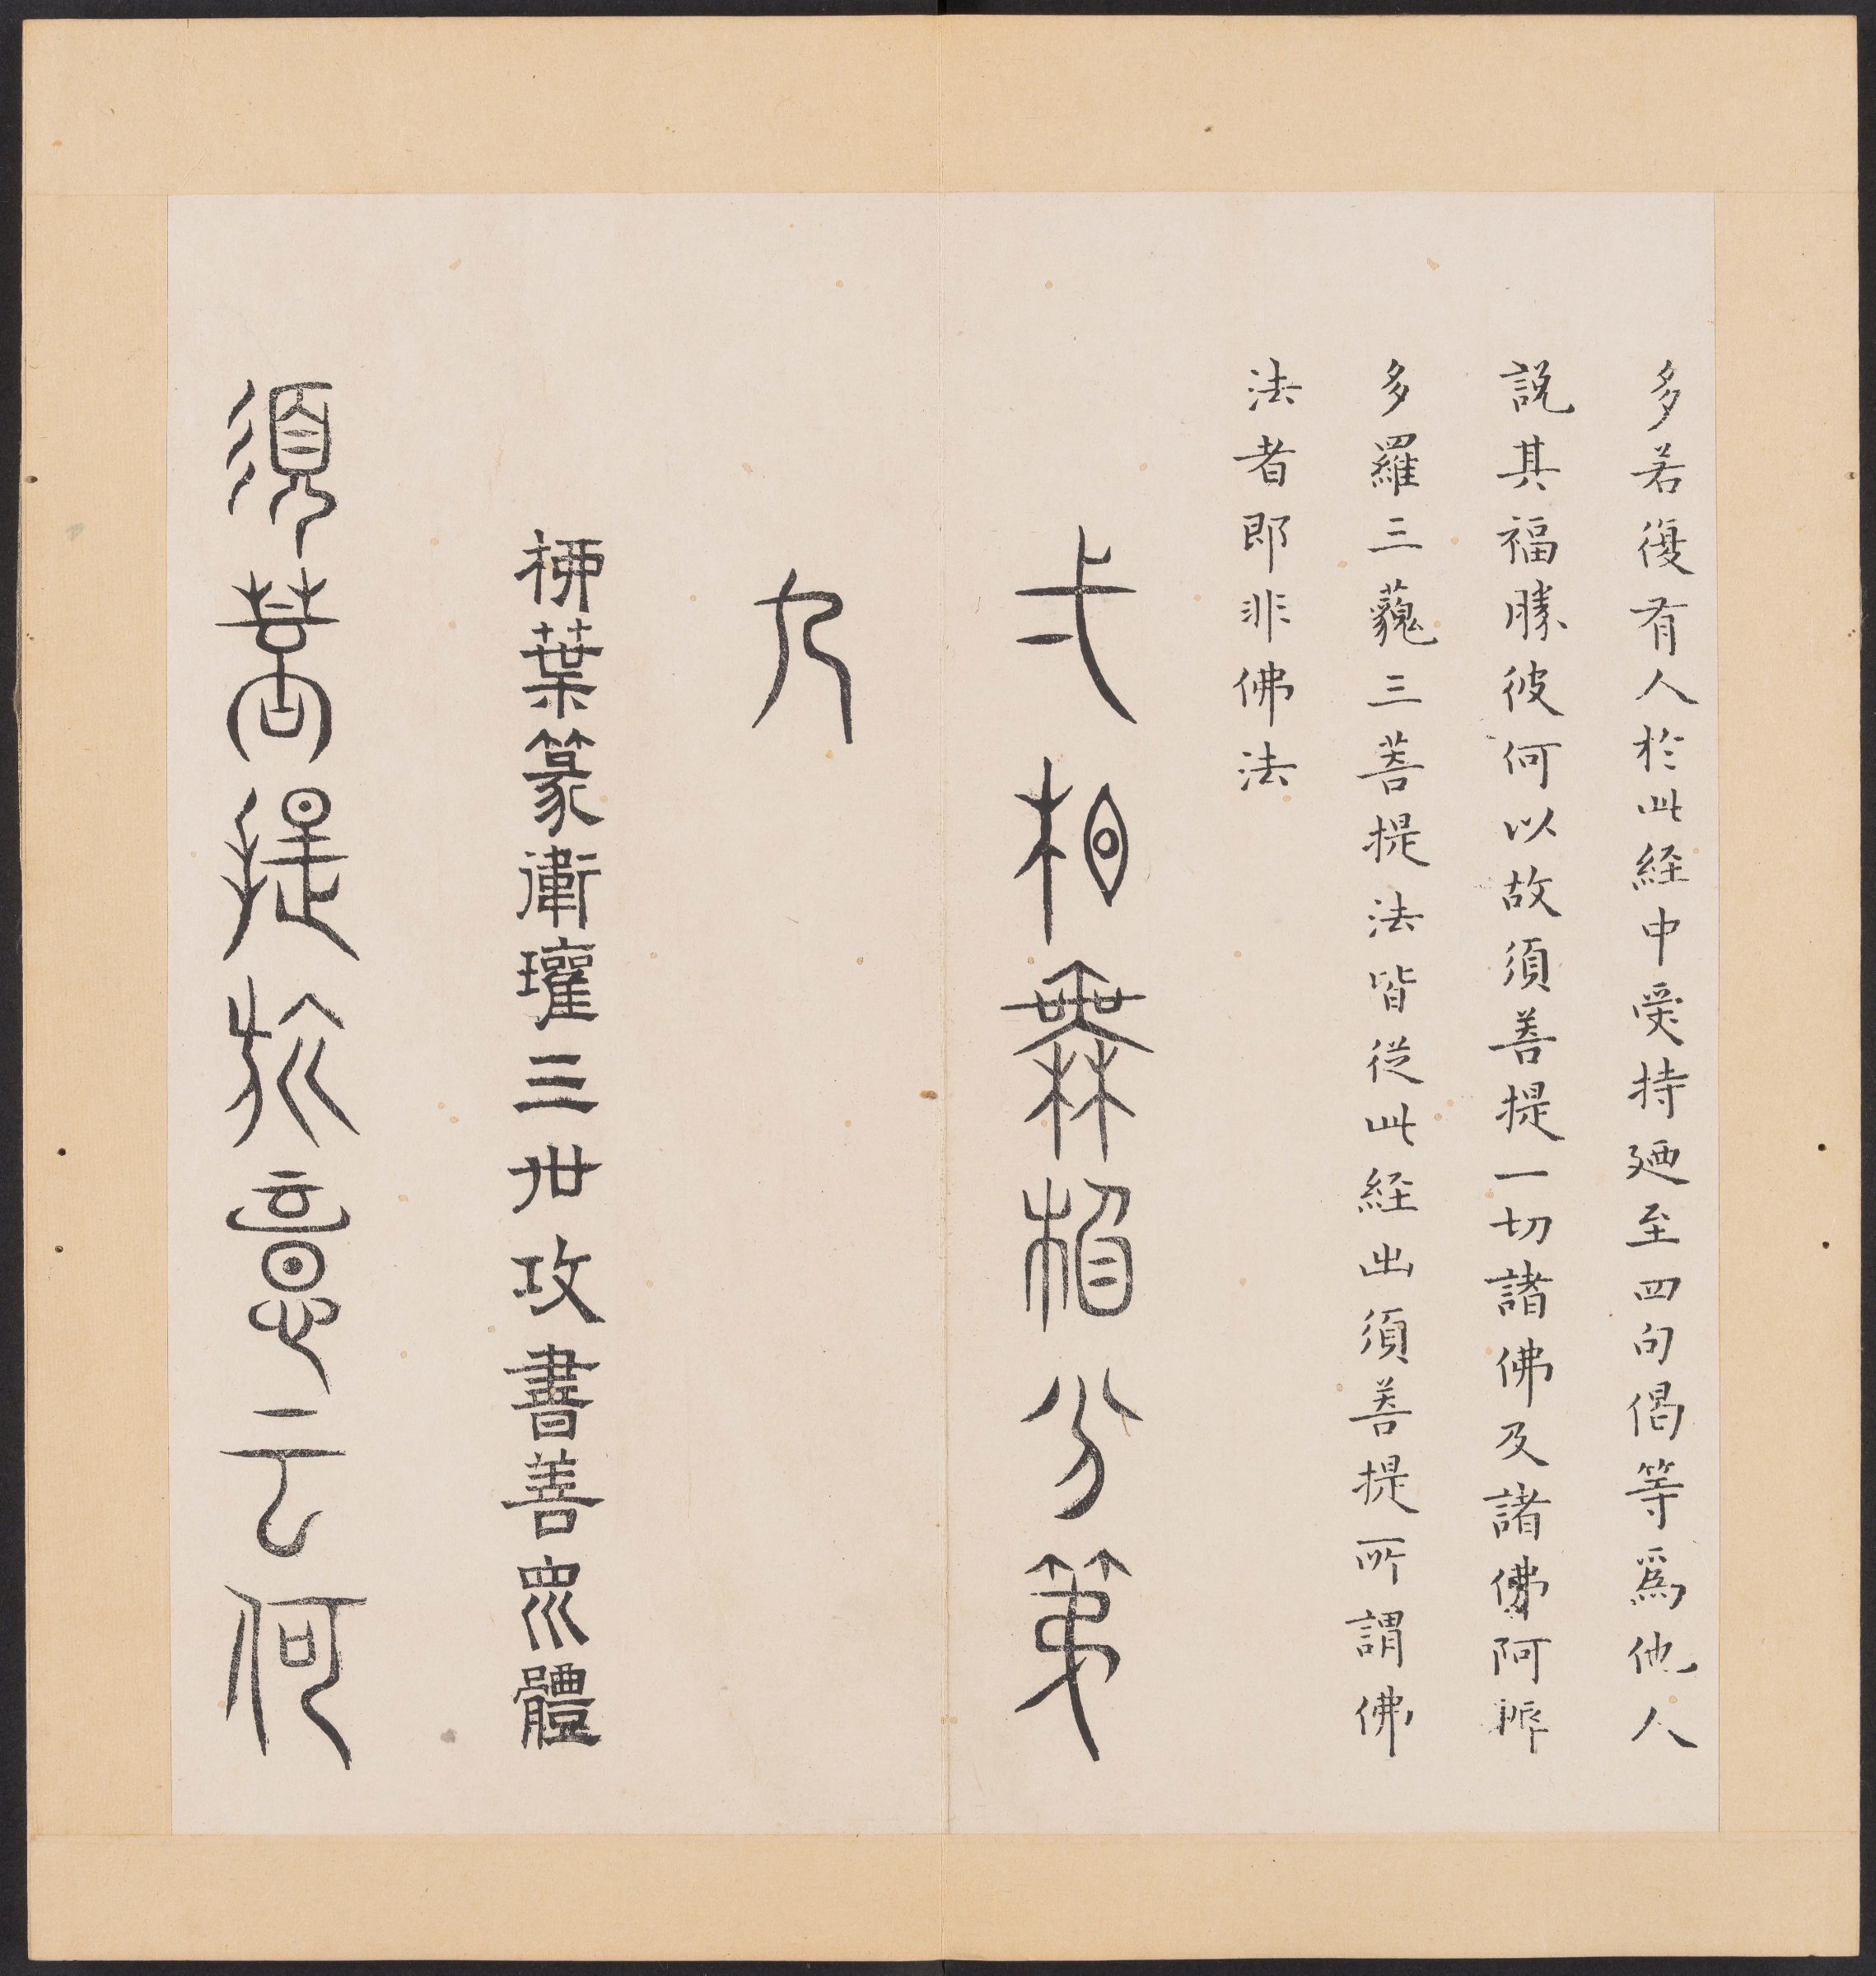 多若復有人於此経中受持廼至四句偈等爲他人
說其福勝彼何以故須菩提一切諸佛及諸佛阿耨
多羅三藐三菩提法皆從此経出須菩提所謂佛
法者即非佛法
弌相無相分第
九
柳葉篆衛瓘三世攻書善眾體
須菩提於意云何